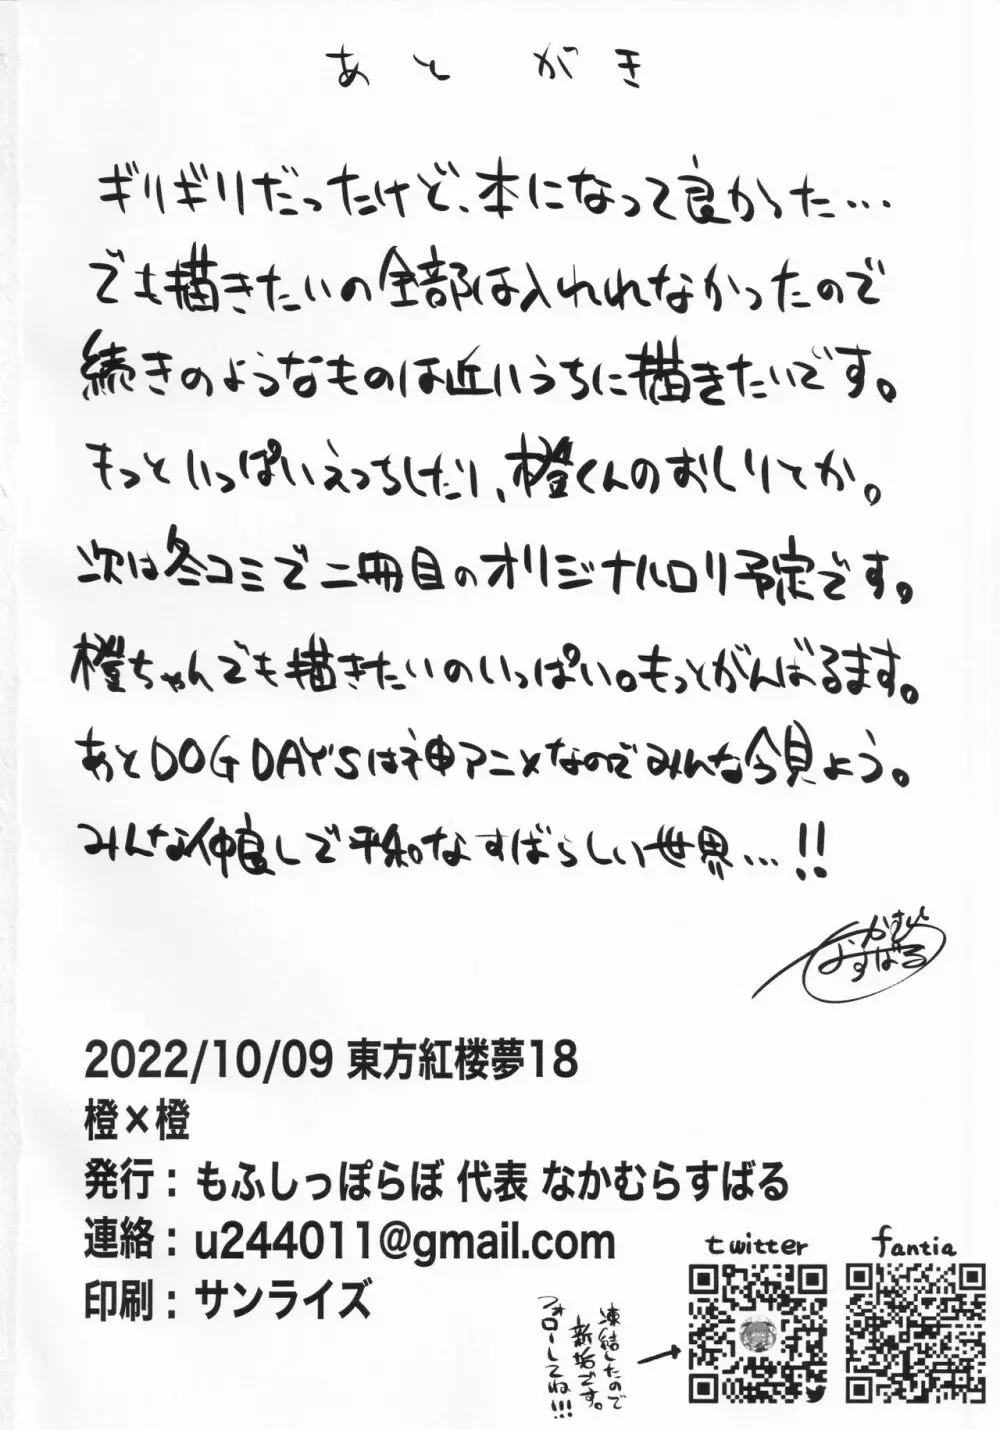 あとがき
ギリギリだったけど、本になって良かった…
でも描きたいの全部は入れれなかったので
続きのようなものは近いうちに描きたいです。
もっといっぱいえっちしたり、橙くんのおしりとか。
次は冬コミで二冊目のオリジナルロリ予定です。
橙ちゃんでも描きたいのいっぱい。もっとがんばるます。
あとDOG DAYSは神アニメなのでみんな今見よう。
みんな仲良しで平和なすばらしい世界…!!
なかむら
すばる
2022/10/09 東方紅楼夢18
橙×橙
発行：もふしっぽらぼ 代表 なかむらすばる
連絡：u244011@gmail.com
印刷：サンライズ
twitter
fantia
凍結したので
新垢です。
フォローしてね!!!